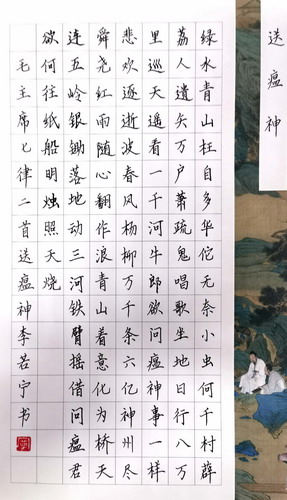 送瘟神
绿水青山枉自多华佗无奈小虫何千村薜
荔人遗矢万户萧疏鬼唱歌坐地日行八万
里巡天遥看一千河牛郎欲问瘟神事一样
悲欢逐逝波春风杨柳万千条六亿神州尽
舜尧红雨随心翻作浪青山着意化为桥天
连五岭银锄落地动三河铁臂摇借问瘟君
欲何往纸船明烛照天烧
毛主席七律二首送瘟神李若宁书